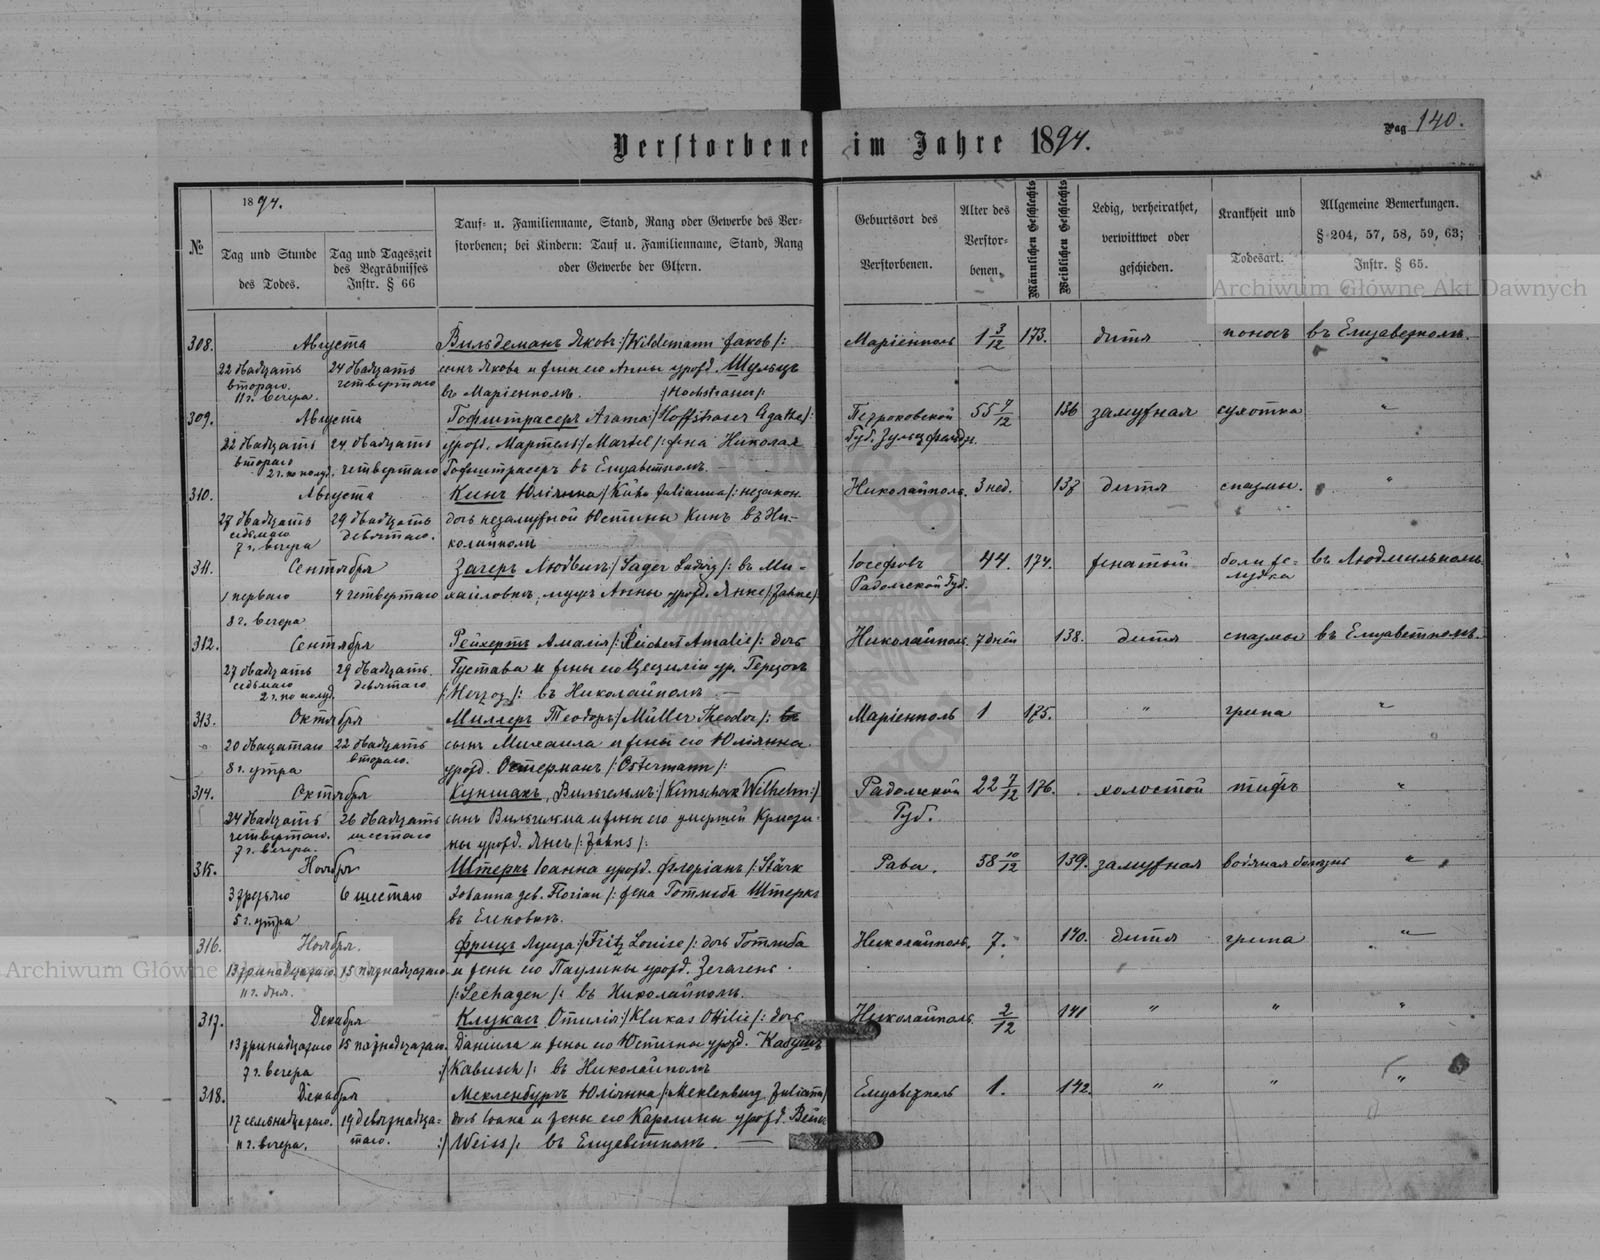 Verstorbene im Jahre 1894.
Pag 140.
№
1894.
Tag und Stunde
des Todes.
Tag und Tageszeit
des Begräbnisses
Instr. § 66
Tauf- u. Familienname, Stand, Rang oder Gewerbe des Ver-
storbenen; bei Kindern: Tauf u. Familienname, Stand, Rang
oder Gewerbe der Eltern.
Geburtsort des
Verstorbenen.
Alter des
Verstor-
benen.
Männlichen Geschlechts
Weiblichen Geschlechts
Ledig, verheirathet,
verwittwet oder
geschieden.
Krankheit und
Todesart.
Allgemeine Bemerkungen.
§ 204, 57, 58, 59, 63;
Instr. § 65.
Archiwum Główne Akt Dawnych
308. Августа Вильдеманъ Яковъ /: Wildemann Jakob /: Маріенполь 1 3/12 173. дитя поносъ въ Елизаветполь.
22 двадцать 24 двадцать сынъ Якова и жены его Анны урожд. Шульцъ
втораго. четвертаго
11 г. вечера. въ Маріенполь. /: Hochstrasser /:
309. Августа Гофштрасеръ Агата /: Hoffstraser Agathe /: Петроковской 55 7/12 136 замужная сухотка "
22 двадцать 24 двадцать урожд. Мартель /: Martel /: жена Николая Губ.
втораго
2 г. по полуд. четвертаго Гофштрасеръ въ Елизаветполь.
310. Августа Кинъ Юліянна /: Kühn Julianna /: незакон. Николайполь. 3 нед. 137 дитя спазмы. "
27 двадцать 29 двадцать дочь незамужной Юстины Кинъ въ Ни-
седьмаго девятаго.
7 г. вечера колайполь
311. Сентября Загеръ Людвикъ /: Sager Ludwig /: въ Ми- Іосефовъ 44. 174. женатый боли же- въ Людмильполь.
1 перваго 4 четвертаго хайловкъ, мужъ Анны урожд. Янке /: Jahnke /: Радомской Губ. лудка
8 г. вечера
312. Сентября Рейхертъ Амалія /: Reichert Amalie /: дочь Николайполь. 7 дней 138. дитя спазмы въ Елизаветполь.
27 двадцать 29 двадцать Густава и жены его Цециліи ур. Герцогъ
седьмаго девятаго
2 г. по полуд. /: Herzog /: въ Николайполь
313. Октября Миллеръ Теодоръ /: Müller Theodor /: Маріенполь 1 175. " грипа "
20 двацатаго 22 двадцать сынъ Михаила и жены его Юліянна
втораго.
8 г. утра урожд. Остерманъ /: Ostermann /:
314. Октября Куншакъ, Вильгельмъ /: Kunschak Wilhelm /: Радомской 22 7/12 176. холостой тифъ "
24 двадцать 26 двадцать сынъ Вильгельма и жены его умершей Кристи- Губ.
четвертаго. шестаго
7 г. вечера. ны урожд. Янсъ /: Jahns /:
315. Ноября Штеркъ Іоанна урожд. Флоріанъ /: Stärk Рава. 58 10/12 139. замужная водяная болезнь "
3 третьяго 6 шестаго Johanna geb. Florian /: жена Готлиба Штеркъ
5 г. утра въ Еленовкъ.
316. Ноября. Фрицъ Луиза /: Fritz Louise /: дочь Готлиба Николайполь. 7. 140. дитя грипа "
13 тринадцатаго 15 пятнадцатаго и жены его Паулины урожд. Зегагенъ.
11 г. дня. /: Seehagen /: въ Николайполь.
Archiwum Główne
317. Декабря Клукасъ Отилія /: Klukas Ottilie /: дочь Николайполь 2/12 141 " " "
13 тринадцатаго 15 пятнадцатаго. Даніила и жены его Юстины урожд. Кабушъ
7 г. вечера /: Kabusch /: въ Николайполь
318. Декабря Мекленбургъ Юліянна /: Meklenburg Julianna /: Елизаветполь 1. 142. " " "
17 семьнадцатаго. 19 девятнадца- дочь Іоана и жены его Каролины урожд. Вейсъ
11 г. вечера. таго. /: Weiss /: въ Елизаветполь.